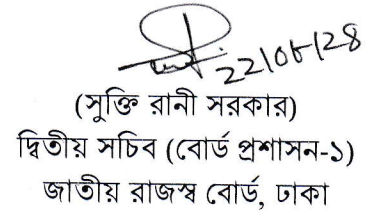 (সুক্তি রানী সরকার)
দ্বিতীয় সচিব (বোর্ড প্রশাসন-১)
জাতীয় রাজস্ব বোর্ড, ঢাকা